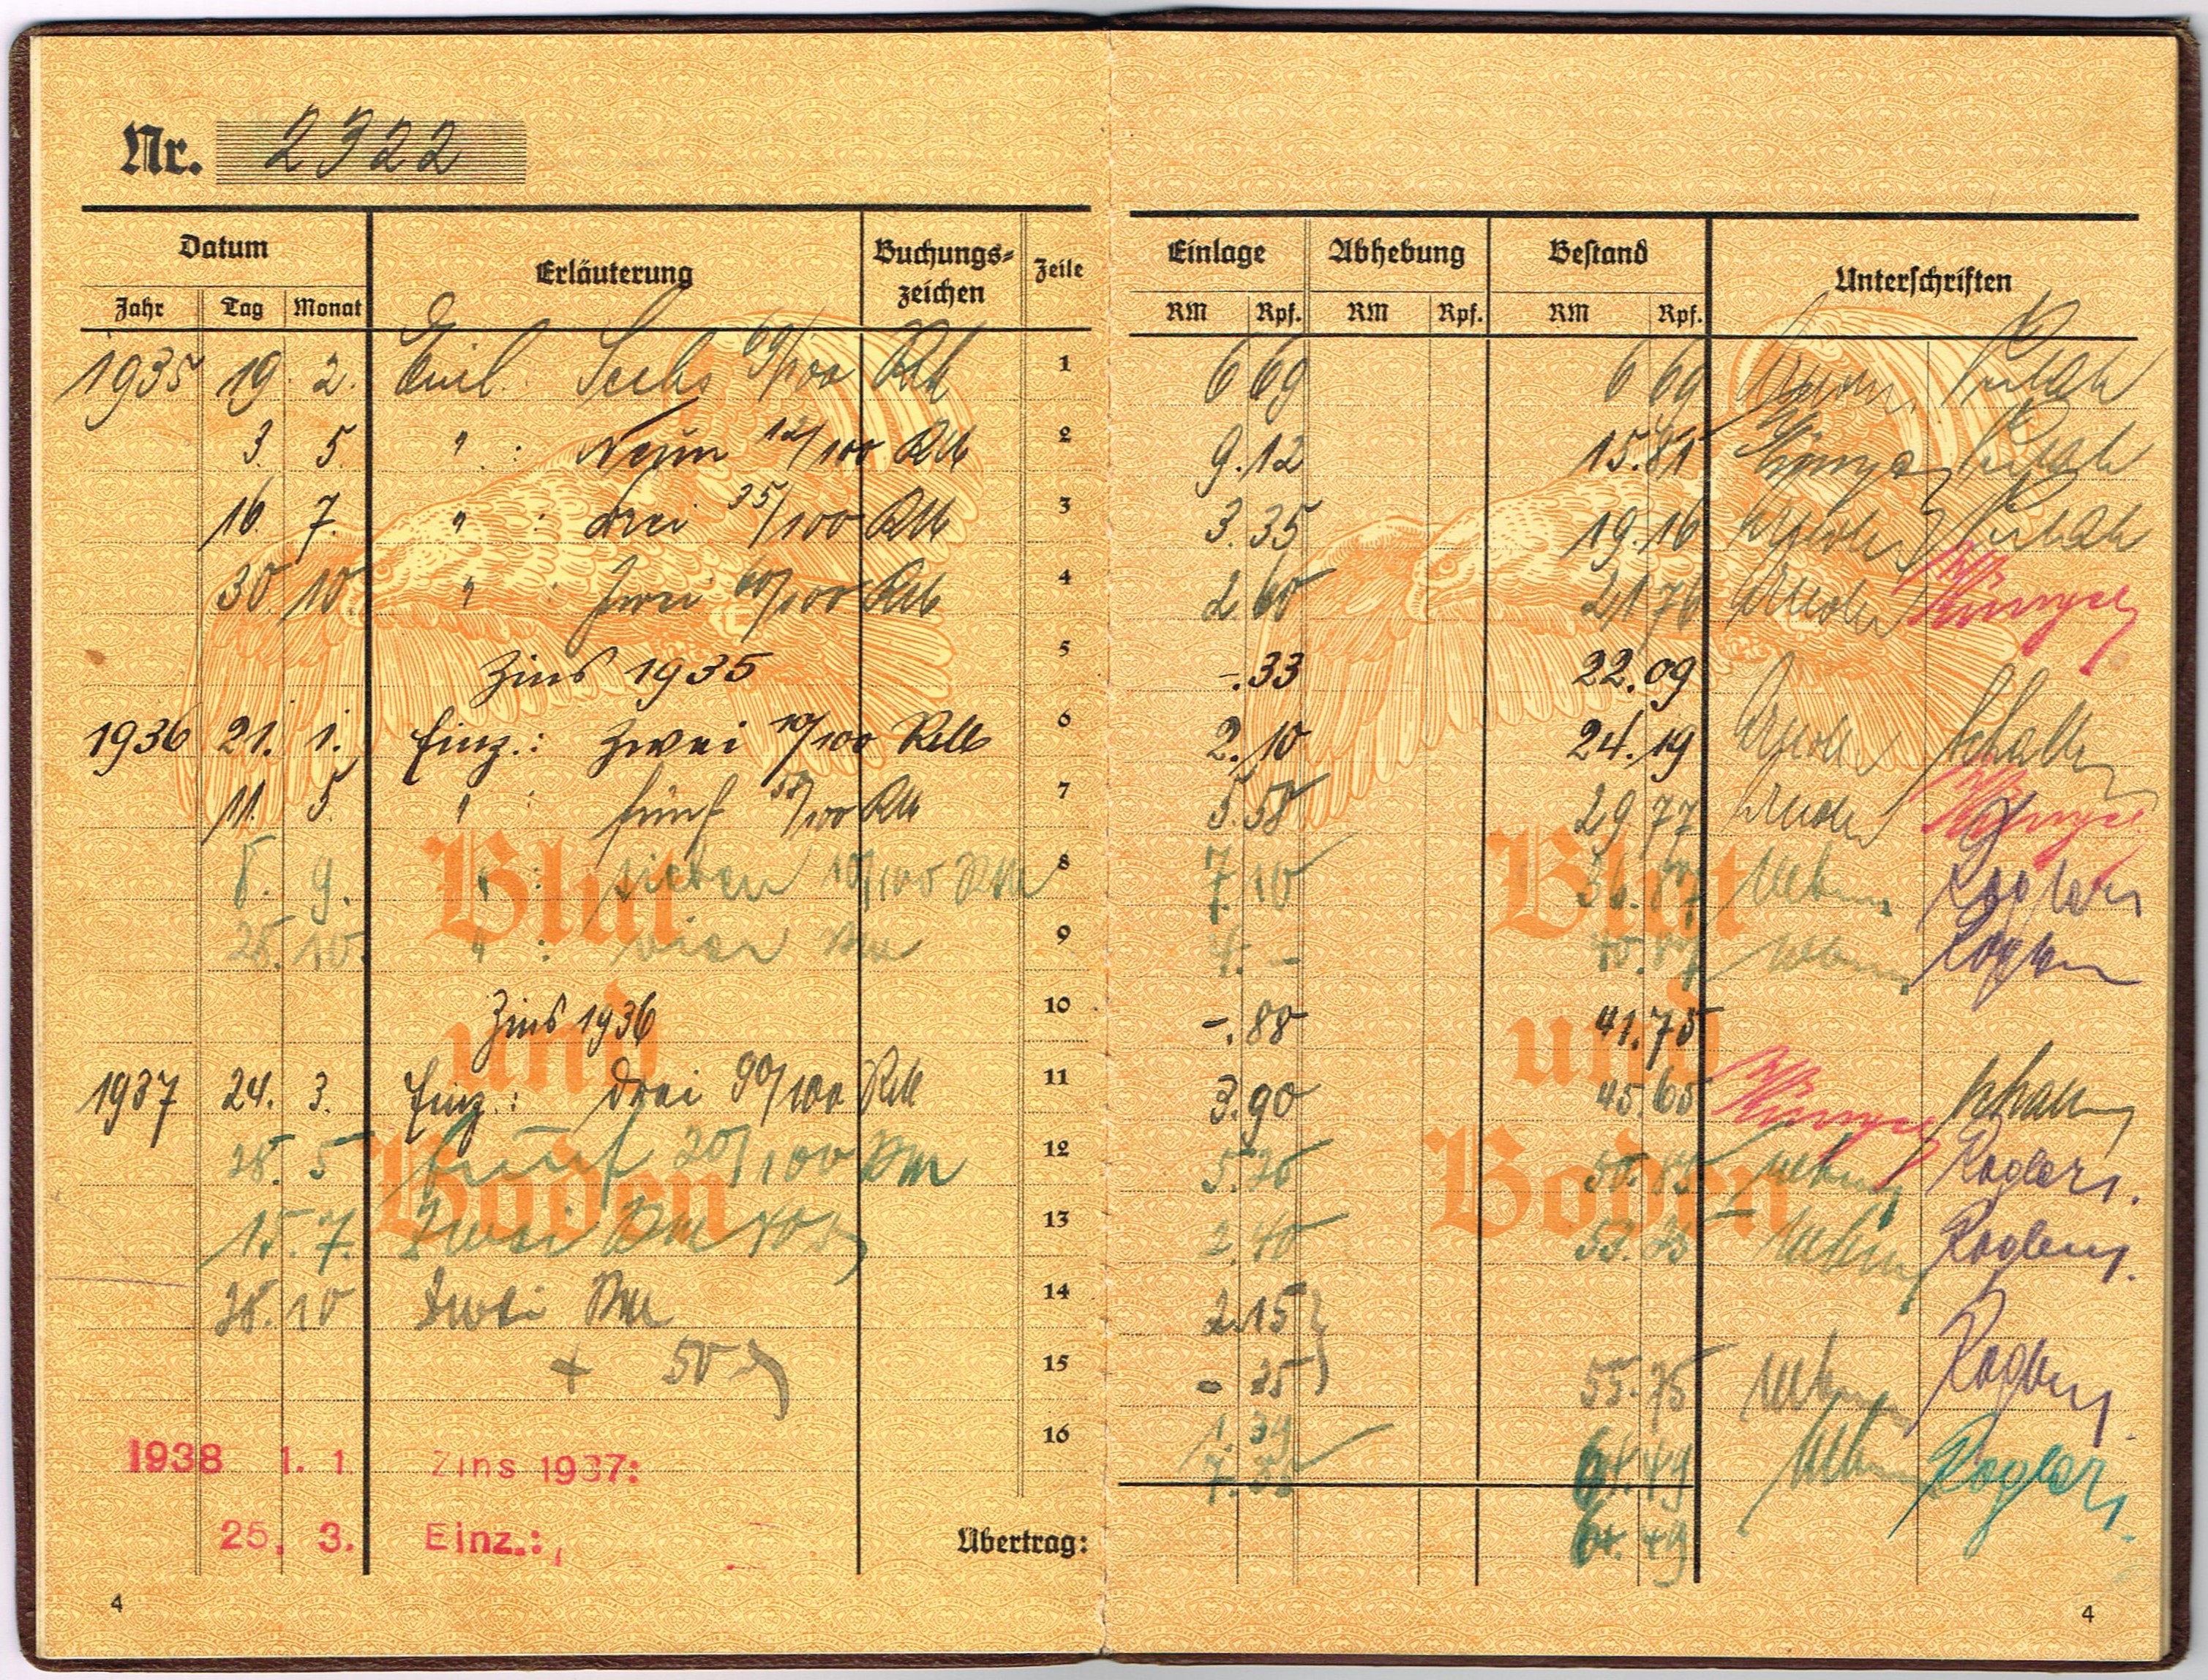 Nr. 2322
Datum Erläuterung Buchungs= Zeile Einlage Abhebung Bestand Unterschriften
zeichen
Jahr Tag Monat RM Rpf. RM Rpf. RM Rpf.
1935 19. 2. Einl. : Sechs 69/100 RM 1 6 69 6 69
3. 5. " : Neun 12/100 RM 2 9.12 15.81
16. 7. " : drei 35/100 RM 3 3.35 19.16
30 10. " : Zwei 60/100 RM 4 2.60 21 76
Zins 1935 5 -.33 22.09
1936 21. 1. Einz.: zwei 10/100 RM 6 2.10 24.19
11. 5. " : fünf 58/100 RM 7 5.58 29 77
8. 9. " : sieben 10/100 RM 8 7.10 36.87
Blut Blut
28. 10. " : vier RM 9 4. - 40.87
Zins 1936 10 -.88 41.75
und und
1937 24. 3. Einz.: drei 90/100 RM 11 3.90 45.65
28. 5 fünf 20/100 RM 12 5.20 50.85 Roglers.
Boden Boden
15. 7. Zwei RM 40 13 2.40 53.25
28. 10 Zwei RM 14 2.15
+ 50 15 - 35 55.75
16 1.39
1938 1. 1. Zins 1937:
7.35 64.49
25. 3. Einz.:
Übertrag: 64.49
4 4